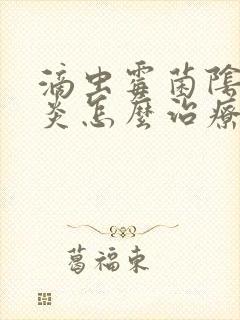 滴虫霉菌陰
炎怎麼治療
葛福東